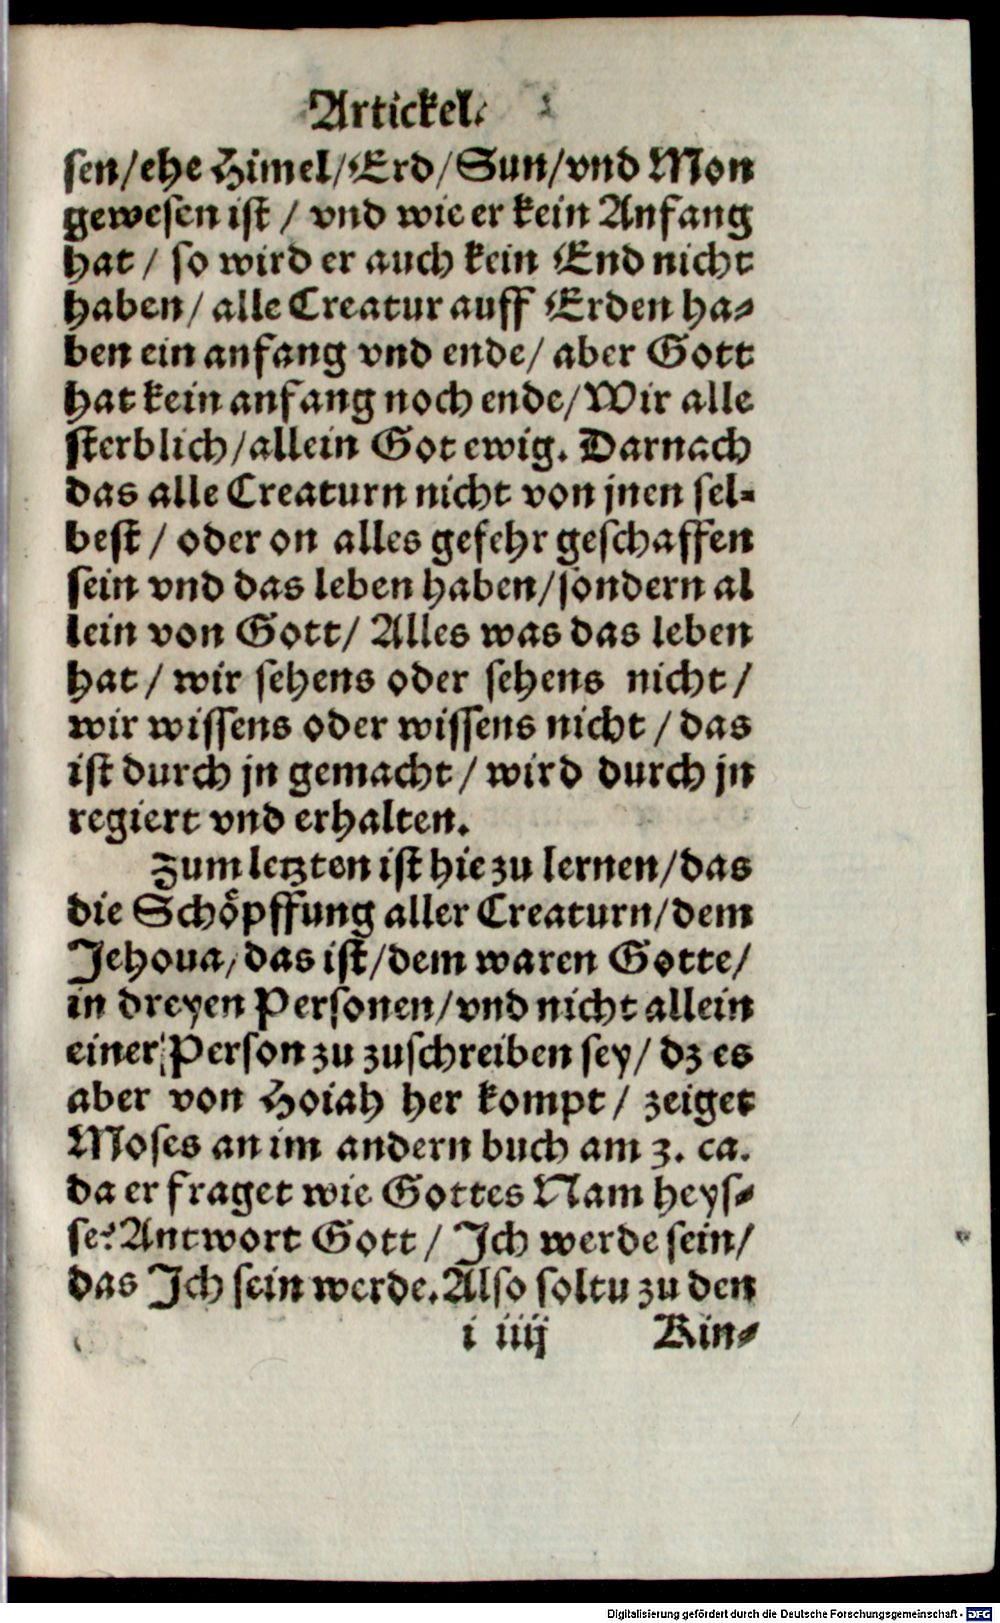 Artickel.
sen/ehe Himel/Erd/Sun/vnd Mon
gewesen ist / vnd wie er kein Anfang
hat / so wird er auch kein End nicht
haben/ alle Creatur auff Erden ha⸗
ben ein anfang vnd ende/ aber Gott
hat kein anfang noch ende/Wir alle
sterblich/allein Got ewig. Darnach
das alle Creaturn nicht von jnen sel⸗
best / oder on alles gefehr geschaffen
sein vnd das leben haben/sondern al
lein von Gott/ Alles was das leben
hat / wir sehens oder sehens nicht/
wir wissens oder wissens nicht / das
ist durch jn gemacht/ wird durch jn
regiert vnd erhalten.
Zum letzten ist hie zu lernen/das
die Schöpffung aller Creaturn/dem
Jehoua/das ist/dem waren Gotte/
in dreyen Personen/vnd nicht allein
einer Person zu zuschreiben sey/ dz es
aber von Hoiah her kompt/ zeiget
Moses an im andern buch am 3. ca.
da er fraget wie Gottes Nam heys⸗
se? Antwort Gott / Ich werde sein/
das Ich sein werde. Also soltu zu den
i iiij Kin⸗
Digitalisierung gefördert durch die Deutsche Forschungsgemeinschaft - DFG